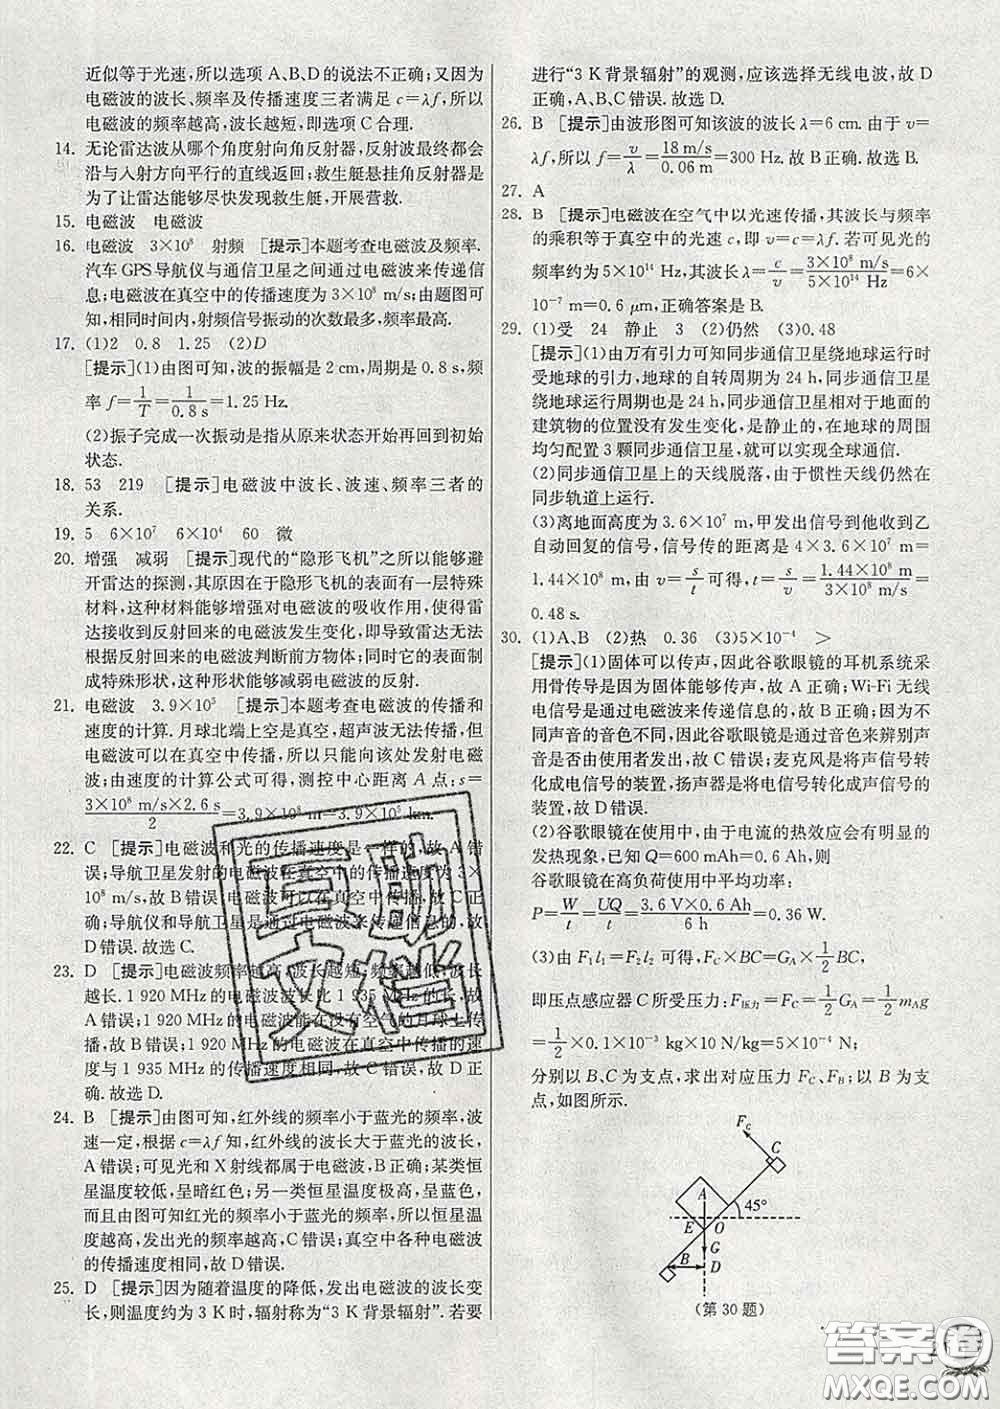 近似等于光速,所以选项 A、B、D 的说法不正确;又因为
电磁波的波长、频率及传播速度三者满足 c=λf,所以
电磁波的频率越高,波长越短,即选项 C 合理.
14. 无论雷达波从哪个角度射向角反射器,反射波最终都会
沿与入射方向平行的直线返回;救生艇悬挂角反射器是
为了让雷达能够尽快发现救生艇,开展营救.
15. 电磁波 电磁波
16. 电磁波 3×10⁸ 射频 [提示]本题考查电磁波及频率.
汽车GPS导航仪与通信卫星之间通过电磁波来传递信
息;电磁波在真空中的传播速度为 3×10⁸ m/s;由题图可
知,相同时间内,射频信号振动的次数最多,频率最高.
17. (1)2 0.8 1.25 (2)D
[提示](1)由图可知,波的振幅是 2 cm,周期是 0.8 s,频
率 f=1/T=1/0.8 s=1.25 Hz.
(2)振子完成一次振动是指从原来状态开始再回到初始
状态.
18. 53 219 [提示]电磁波中波长、波速、频率三者的
关系.
19. 5 6×10⁷ 6×10⁴ 60 微
20. 增强 减弱 [提示]现代的“隐形飞机”之所以能够避
开雷达的探测,其原因在于隐形飞机的表面有一层特殊
材料,这种材料能够增强对电磁波的吸收作用,使得雷
达接收到反射回来的电磁波发生变化,即导致雷达无法
根据反射回来的电磁波判断前方物体;同时它的表面制
成特殊形状,这种形状能够减弱电磁波的反射.
21. 电磁波 3.9×10⁵ [提示]本题考查电磁波的传播和
速度的计算. 月球北端上空是真空,超声波无法传播,但
电磁波可以在真空中传播,所以只能向该处发射电磁
波;由速度的计算公式可得,测控中心距离 A 点:s=
3×10⁸ m/s×2.6 s/2=3.9×10⁸ m=3.9×10⁵ km.
22. C [提示]电磁波和光的传播速度是一样的,故 A 错
误;导航卫星发射的电磁波在真空中的传播速度为 3×
10⁸ m/s,故 B 错误;电磁波可以在真空中传播,故 C 正
确;导航仪和导航卫星是通过电磁波来传递信息的,故
D 错误.故选 C.
23. D [提示]电磁波频率越高,波长越短,频率越低,波长
越长. 1 920 MHz 的电磁波波长比 1 935 MHz 的长,故
A 错误;1 920 MHz 的电磁波能在没有空气的月球上传
播,故 B 错误;1 920 MHz 的电磁波在真空中传播的速
度与 1 935 MHz 的传播速度相同,故 C 错误,故 D 正
确.故选 D.
24. B [提示]由图可知,红外线的频率小于蓝光的频率,波
速一定,根据 c=λf 知,红外线的波长大于蓝光的波长,
A 错误;可见光和 X 射线都属于电磁波,B 正确;某类恒
星温度较低,呈暗红色;另一类恒星温度极高,呈蓝色,
而且由图可知红光的频率小于蓝光的频率,所以恒星温
度越高,发出光的频率越高,C 错误;真空中各种电磁波
的传播速度相同,故 D 错误.
25. D [提示]因为随着温度的降低,发出电磁波的波长变
长,则温度约为 3 K 时,辐射称为“3 K 背景辐射”. 若要
进行“3 K 背景辐射”的观测,应该选择无线电波,故 D
正确,A、B、C 错误.故选 D.
26. B [提示]由波形图可知该波的波长 λ=6 cm. 由于 v=
λf,所以 f=v/λ=18 m/s/0.06 m=300 Hz. 故 B 正确.故选 B.
27. A
28. B [提示]电磁波在空气中以光速传播,其波长与频率
的乘积等于真空中的光速 c,即 v=c=λf. 若可见光的
频率约为 5×10¹⁴ Hz,其波长 λ=c/v=3×10⁸ m/s/5×10¹⁴ Hz=6×
10⁻⁷ m=0.6 μm,正确答案是 B.
29. (1)受 24 静止 3 (2)仍然 (3)0.48
[提示](1)由万有引力可知同步通信卫星绕地球运行时
受地球的引力,地球的自转周期为 24 h,同步通信卫星
绕地球运行周期也是 24 h,同步通信卫星相对于地面的
建筑物的位置没有发生变化,是静止的,在地球的周围
均匀配置 3 颗同步通信卫星,就可以实现全球通信.
(2)同步通信卫星上的天线脱落,由于惯性天线仍然在
同步轨道上运行.
(3)离地面高度为 3.6×10⁷ m,甲发出信号到他收到乙
自动回复的信号,信号传的距离至少是 4×3.6×10⁷ m=
1.44×10⁸ m,由 v=s/t 可得,t=s/v=1.44×10⁸ m/3×10⁸ m/s=
0.48 s.
30. (1)A、B (2)热 0.36 (3)5×10⁻⁴ >
[提示](1)固体可以传声,因此谷歌眼镜的耳机系统采
用骨传导是因为固体能够传声,故 A 正确;Wi-Fi 无线
电信号是通过电磁波来传递信息的,故 B 正确;因为不
同声音的音色不同,因此谷歌眼镜是通过音色来辨别声
音是否由使用者发出,故 C 错误;麦克风是将声信号转
化成电信号的装置,扬声器是将电信号转化成声信号的
装置,故 D 错误.
(2)谷歌眼镜在使用中,由于电流的热效应会有明显的
发热现象,已知 Q=600 mAh=0.6 Ah,则
谷歌眼镜在高负荷使用中平均功率:
P=W/t=UQ/t=3.6 V×0.6 Ah/6 h=0.36 W.
(3)由 F₁l₁=F₂l₂ 可得,F_C×BC=G_A×1/2 BC,
即压点感应器 C 所受压力:F压力=F_C=1/2 G_A=1/2 m_A g
=1/2×0.1×10⁻³ kg×10 N/kg=5×10⁻⁴ N;
分别以 B、C 为支点,求出对应压力 F_C、F_B;以 B 为支
点,如图所示.
F_C
C
A
45°
E
O
G
B
D
(第 30 题)
重助
文档
答案圈
MXQE.COM